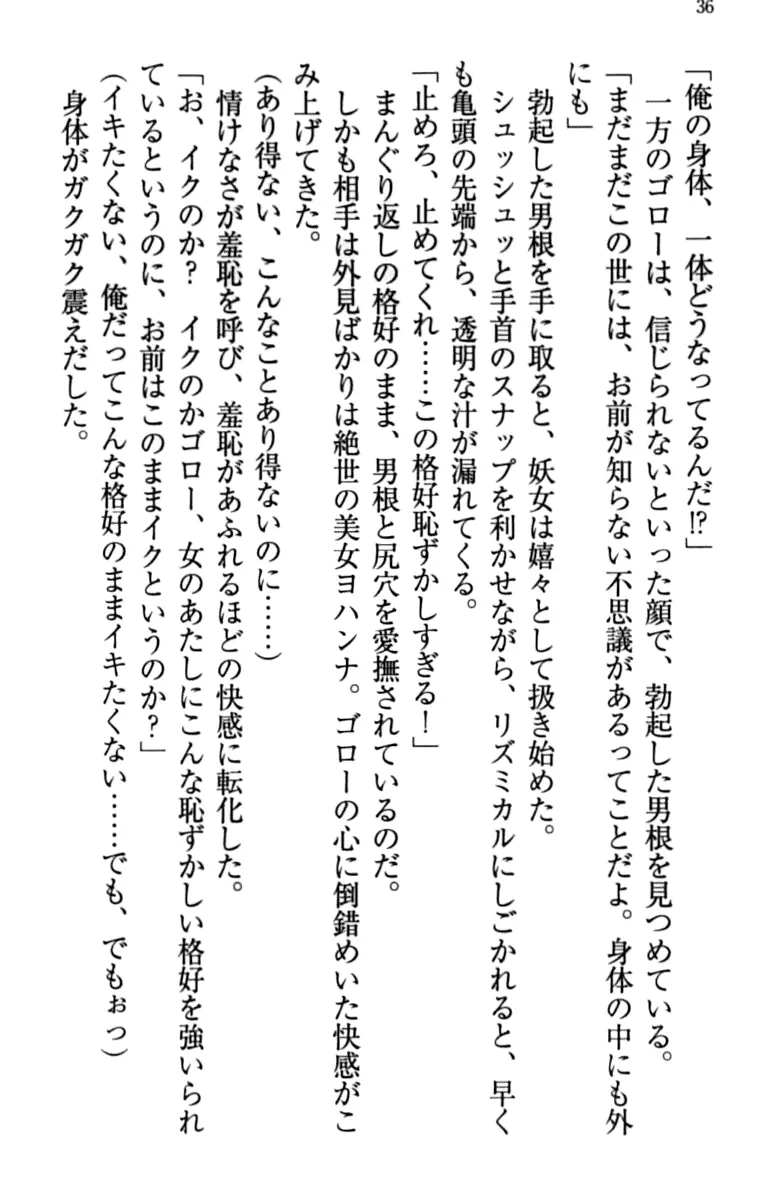 36
「俺の身体、一体どうなってるんだ!?」
一方のゴローは、信じられないといった顔で、勃起した男根を見つめている。
「まだまだこの世には、お前が知らない不思議があるってことだよ。身体の中にも外
にも」
勃起した男根を手に取ると、妖女は嬉々として扱き始めた。
シュッシュッと手首のスナップを利かせながら、リズミカルにしごかれると、早く
も亀頭の先端から、透明な汁が漏れてくる。
「止めろ、止めてくれ……この格好恥ずかしすぎる！」
まんぐり返しの格好のまま、男根と尻穴を愛撫されているのだ。
しかも相手は外見ばかりは絶世の美女ヨハンナ。ゴローの心に倒錯めいた快感がこ
み上げてきた。
（あり得ない、こんなことあり得ないのに……）
情けなさが羞恥を呼び、羞恥があふれるほどの快感に転化した。
「お、イクのか？　イクのかゴロー、女のあたしにこんな恥ずかしい格好を強いられ
ているというのに、お前はこのままイクというのか？」
（イキたくない、俺だってこんな格好のままイキたくない……でも、でもぉっ）
身体がガクガク震えだした。